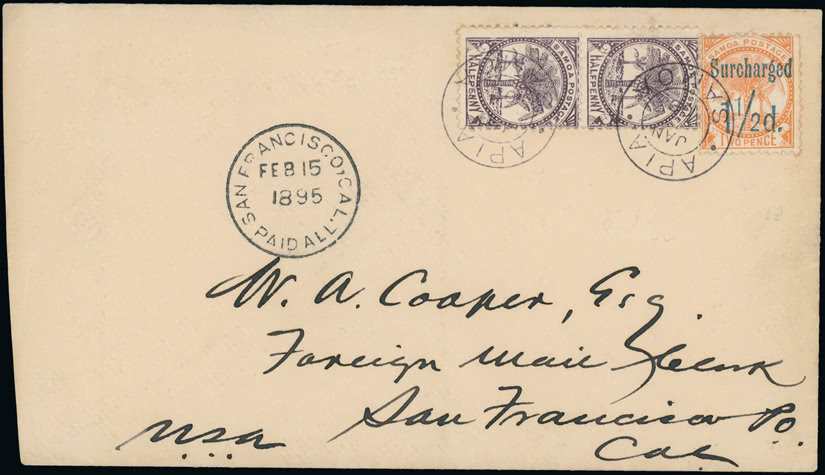 SAMOA POSTAGE
HALFPENNY
SAMOA POSTAGE
HALFPENNY
SAMOA POSTAGE
Surcharged
1½d.
TWO PENCE
APIA
APIA SAMOA
JAN
SAN FRANCISCO, CAL.
FEB 15
1895
PAID ALL.
W. A. Cooper, Esq.
Foreign Mail Clerk
San Francisco Po.
Cal
USA